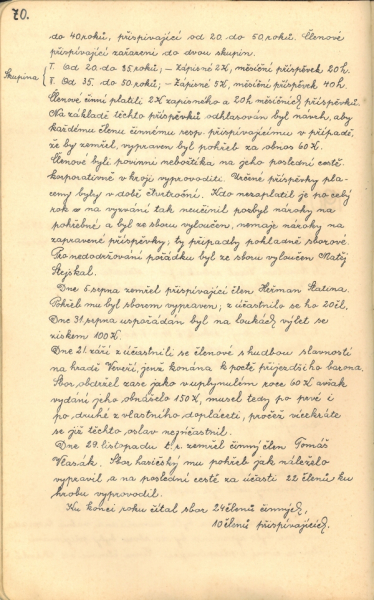 70.
do 40 roků, přispívající od 20. do 50 roků. Členové
přispívající zařazeni do dvou skupin.
Skupina
I. Od 20. do 35 roků; – Zápisné 2 K, měsíční příspěvek 20 h.
II. Od 35. do 50 roků; – Zápisné 5 K, měsíční příspěvek 40 h.
Členové činní platili 2 K zápisného a 20 h měsíčních příspěvků.
Na základě těchto příspěvků odhlasován byl návrh, aby
každému členu činnému resp. přispívajícímu v případě,
že by zemřel, vypraven byl pohřeb za obnos 60 K.
Členové byli povinni nebožtíka na jeho poslední cestě
korporativně v kroji vyprovoditi. Určené příspěvky pla-
ceny byly v době čtvrtroční. Kdo nezaplatil je po celý
rok a na vyzvání tak neučinil pozbyl nároky na
pohřebné a byl ze sboru vyloučen, nemaje nároky na
zapravené příspěvky, ty připadly pokladně sborové.
Pro nedodržování pořádku byl ze sboru vyloučen Matěj
Stejskal.
Dne 5. srpna zemřel přispívající člen Heřman Slatina.
Pohřeb mu byl sborem vypraven; zúčastnilo se ho 20 čl.
Dne 31. srpna uspořádán byl na loukách výlet se
ziskem 100 K.
Dne 21. září zúčastnili se členové s hudbou slavnosti
na hradě Veveří, jenž konána k poctě příjezdu barona.
Sbor obdržel zase jako v uplynulém roce 60 K avšak
vydání jeho obnášelo 150 K, musel tedy po prvé i
po druhé z vlastního dopláceti, pročež vícekráte
se již těchto oslav nezúčastnil.
Dne 29. listopadu t. r. zemřel činný člen Tomáš
Vlasák. Sbor hasičský mu pohřeb jak náleželo
vypravil a na poslední cestě za účasti 22 členů ku
hrobu vyprovodil.
Ku konci roku čítal sbor 24 členů činných,
10 členů přispívajících.